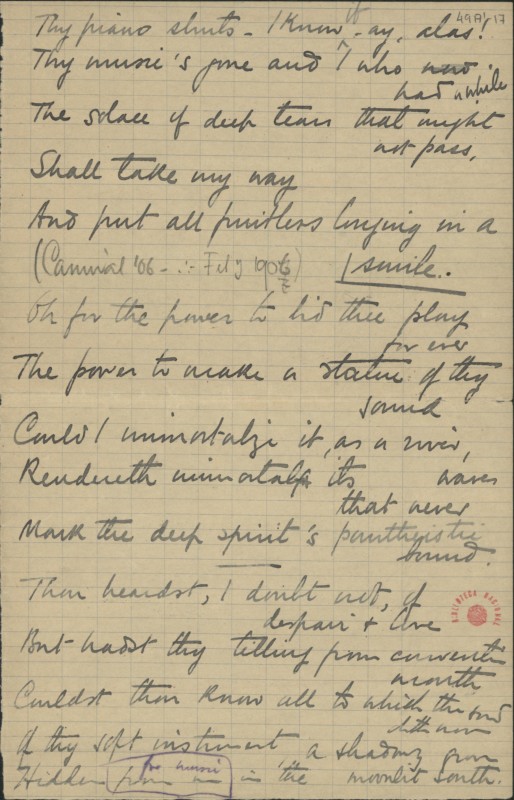 49A1-17
Thy piano shuts - I know it - ay, alas!
Thy music's gone and I who
had a while
The solace of deep tears that might
not pass,
Shall take my way
And put all fruitless longing in a
smile..
(Carnival '06 - ∴ Feby 1906)
Oh for the power to bid thee play
for ever
The power to make a statue of thy
sound
Could I immortalize it, as a river,
Rendereth immortal its waves
that never
Mark the deep spirit's pantheistic
bound.
Thou heardst, I doubt not, of
despair & love
But hadst thy telling from
mouth
Couldst thou know all to which the soul
doth move
Of thy soft instrument a shadowy grove
Hidden from in the moonlit South.
for music
BIBLIOTECA NACIONAL